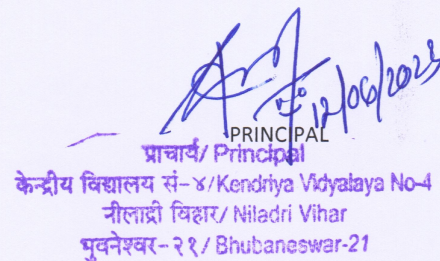 12/06/2023
PRINCIPAL
प्राचार्य/ Principal
केन्द्रीय विद्यालय सं-४/Kendriya Vidyalaya No-4
नीलाद्री विहार/ Niladri Vihar
भुवनेश्वर-२१/ Bhubaneswar-21